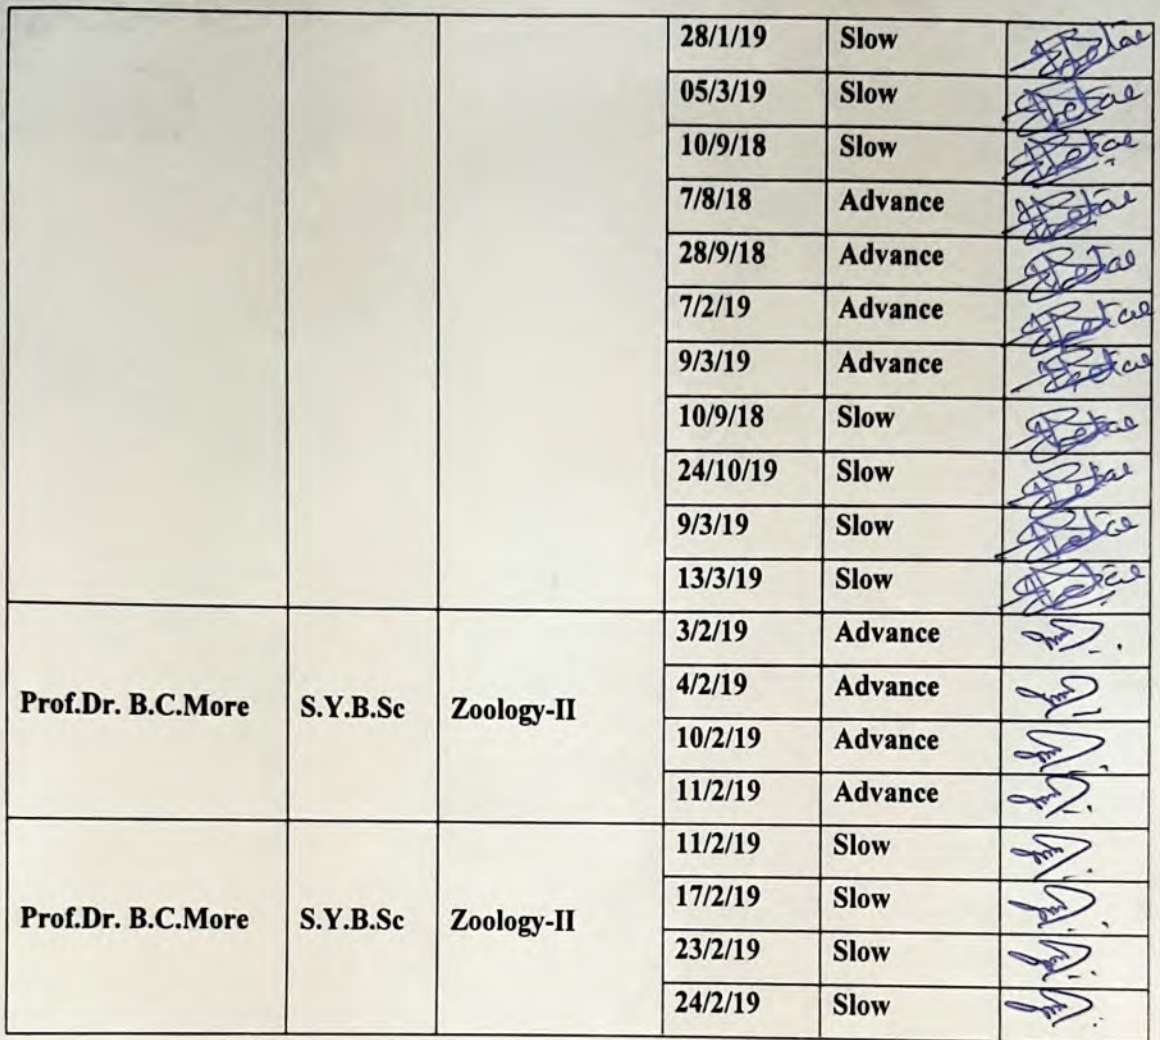 28/1/19 Slow
05/3/19 Slow
10/9/18 Slow
7/8/18 Advance
28/9/18 Advance
7/2/19 Advance
9/3/19 Advance
10/9/18 Slow
24/10/19 Slow
9/3/19 Slow
13/3/19 Slow
3/2/19 Advance
Prof.Dr. B.C.More S.Y.B.Sc Zoology-II 4/2/19 Advance
10/2/19 Advance
11/2/19 Advance
11/2/19 Slow
Prof.Dr. B.C.More S.Y.B.Sc Zoology-II 17/2/19 Slow
23/2/19 Slow
24/2/19 Slow